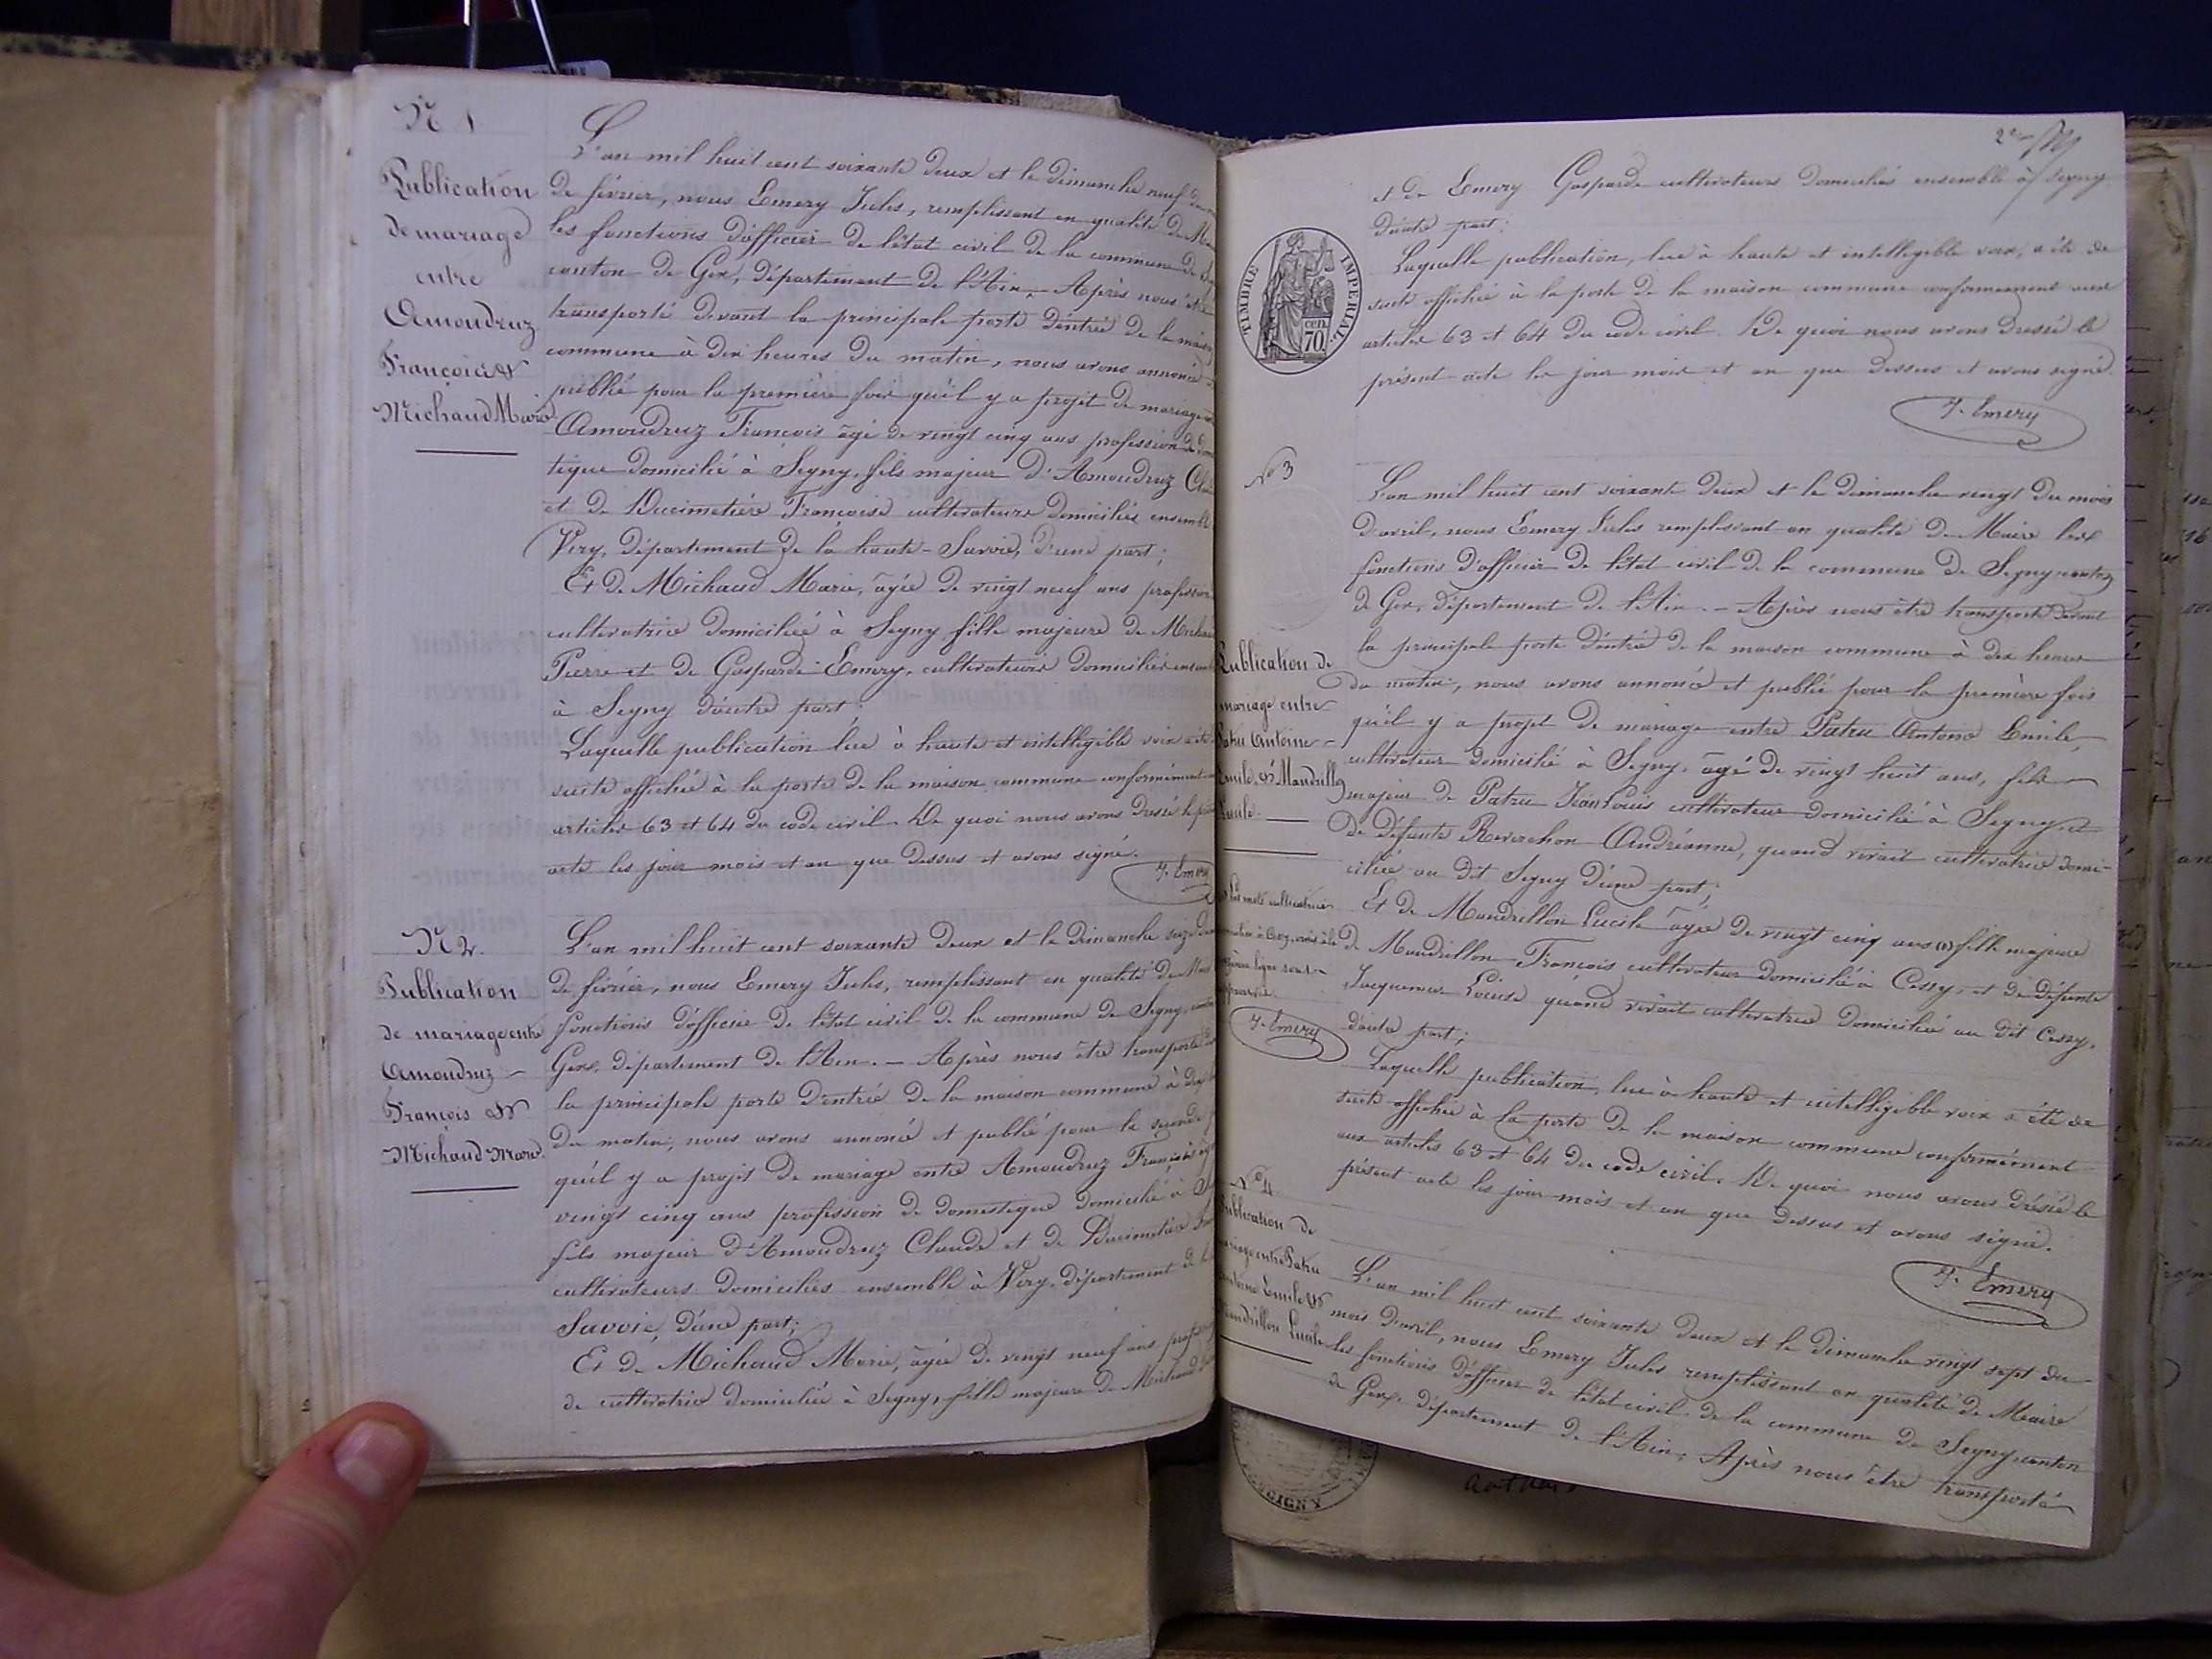 N 1
Publication
de mariage
entre
Amoudruz
François &
Michaud Marie.
L'an mil huit cent soixante deux et le dimanche neuf du
de février, nous Emery Jules, remplissant en qualité de
les fonctions d'officier de l'état civil de la commune de
canton de Gex, département de l'Ain, Après nous être
transporté devant la principale porte d'entrée de la maison
commune à dix heures du matin, nous avons annoncé
publié pour la première fois qu'il y a projet de mariage
Amoudruz François âgé de vingt cinq ans profession de
tique domicilié à Segny, fils majeur d'Amoudruz
et de Ducimetière Françoise cultivateurs domiciliés
Viry, département de la haute-Savoie, d'une part;
Et de Michaud Marie, âgée de vingt neuf ans profession
cultivatrice domiciliée à Segny fille majeure de
Pierre et de Gasparde Emery, cultivateurs domiciliés
à Segny d'autre part;
Laquelle publication lue à haute et intelligible voix a été
suite affichée à la porte de la maison commune conformément
articles 63 et 64 du code civil. De quoi nous avons dressé le
acte les jour mois et an que dessus et avons signé.
J. Emery
N 2.
Publication
de mariage entre
Amoudruz
François &
Michaud Marie.
L'an mil huit cent soixante deux et le dimanche seize
de février, nous Emery Jules, remplissant en qualité de
fonctions d'officier de l'état civil de la commune de Segny,
Gex, département de l'Ain. — Après nous être transporté
la principale porte d'entrée de la maison commune à dix
du matin, nous avons annoncé et publié pour la seconde
qu'il y a projet de mariage entre Amoudruz François
vingt cinq ans profession de domestique domicilié à
fils majeur d'Amoudruz Claude et de Ducimetière
cultivateurs domiciliés ensemble à Viry, département de
Savoie, d'une part;
Et de Michaud Marie, âgée de vingt neuf ans
de cultivatrice domiciliée à Segny, fille majeure de Michaud
2e
et de Emery Gasparde cultivateurs domiciliés ensemble à Segny
d'autre part;
TIMBRE IMPERIAL
70 cen.
Laquelle publication, lue à haute et intelligible voix, a été de
suite affichée à la porte de la maison commune conformément aux
articles 63 et 64 du code civil. De quoi nous avons dressé le
présent acte les jour mois et an que dessus et avons signé.
J. Emery
No 3
Publication de
mariage entre
Patru Antoine
Emile & Mandrillon
Lucile.
L'an mil huit cent soixante deux et le dimanche vingt du mois
d'avril, nous Emery Jules remplissant en qualité de Maire les
fonctions d'officier de l'état civil de la commune de Segny canton
de Gex, département de l'Ain. — Après nous être transporté devant
la principale porte d'entrée de la maison commune à dix heures
du matin, nous avons annoncé et publié pour la première fois
qu'il y a projet de mariage entre Patru Antoine Emile,
cultivateur domicilié à Segny, âgé de vingt huit ans, fils
majeur de Patru Jean Louis cultivateur domicilié à Segny et
de défunte Reverchon Andréanne, quand vivait cultivatrice domi-
ciliée au dit Segny d'une part;
Et de Mandrillon Lucile âgée de vingt cinq ans (1) fille majeure
de Mandrillon François cultivateur domicilié à Cessy, et de défunte
Jacquemar Louise quand vivait cultivatrice domiciliée au dit Cessy,
d'autre part;
(1) Les mots cultivatrice
J. Emery
Laquelle publication, lue à haute et intelligible voix a été de
suite affichée à la porte de la maison commune conformément
aux articles 63 et 64 du code civil. De quoi nous avons dressé le
présent acte les jour mois et an que dessus et avons signé.
J. Emery
No 4
Publication de
mariage entre Patru
Antoine Emile &
Mandrillon Lucile
L'an mil huit cent soixante deux et le dimanche vingt sept du
mois d'avril, nous Emery Jules remplissant en qualité de Maire
les fonctions d'officier de l'état civil de la commune de Segny canton
de Gex, département de l'Ain, Après nous être transporté